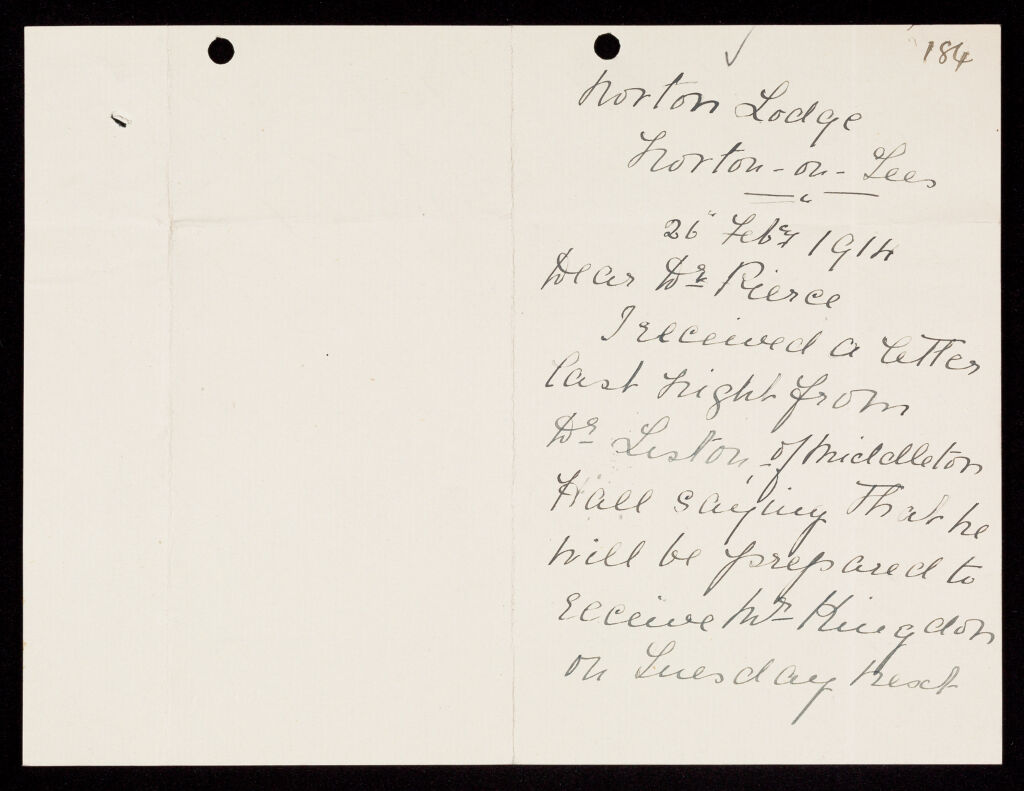 184
Norton Lodge
Norton-on-Tees
26" Feby 1914
Dear Dr Pierce
I received a letter
last night from
Dr Liston, of Middleton
Hall saying that he
will be prepared to
receive Mr Kingdon
on Tuesday next